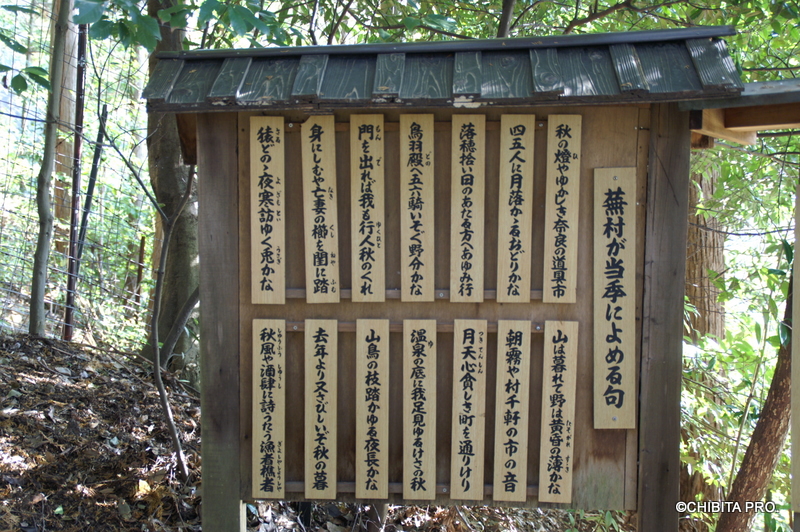 蕪村が当季によめる句
秋の燈やゆかしき奈良の道具市
四五人に月落かゝるおどりかな
落穂拾い日のあたる方へあゆみ行
鳥羽殿へ五六騎いそぐ野分かな
門を出れば我も行人秋のくれ
身にしむや亡妻の櫛を閨に踏
猿どのゝ夜寒訪ゆく兎かな
山は暮れて野は黄昏の薄かな
朝霧や村千軒の市の音
月天心貧しき町を通りけり
温泉の底に我足見ゆるけさの秋
山鳥の枝踏かゆる夜長かな
去年より又さびしいぞ秋の暮
秋風や酒肆に詩うたう漁者樵者
©CHIBITA PRO.